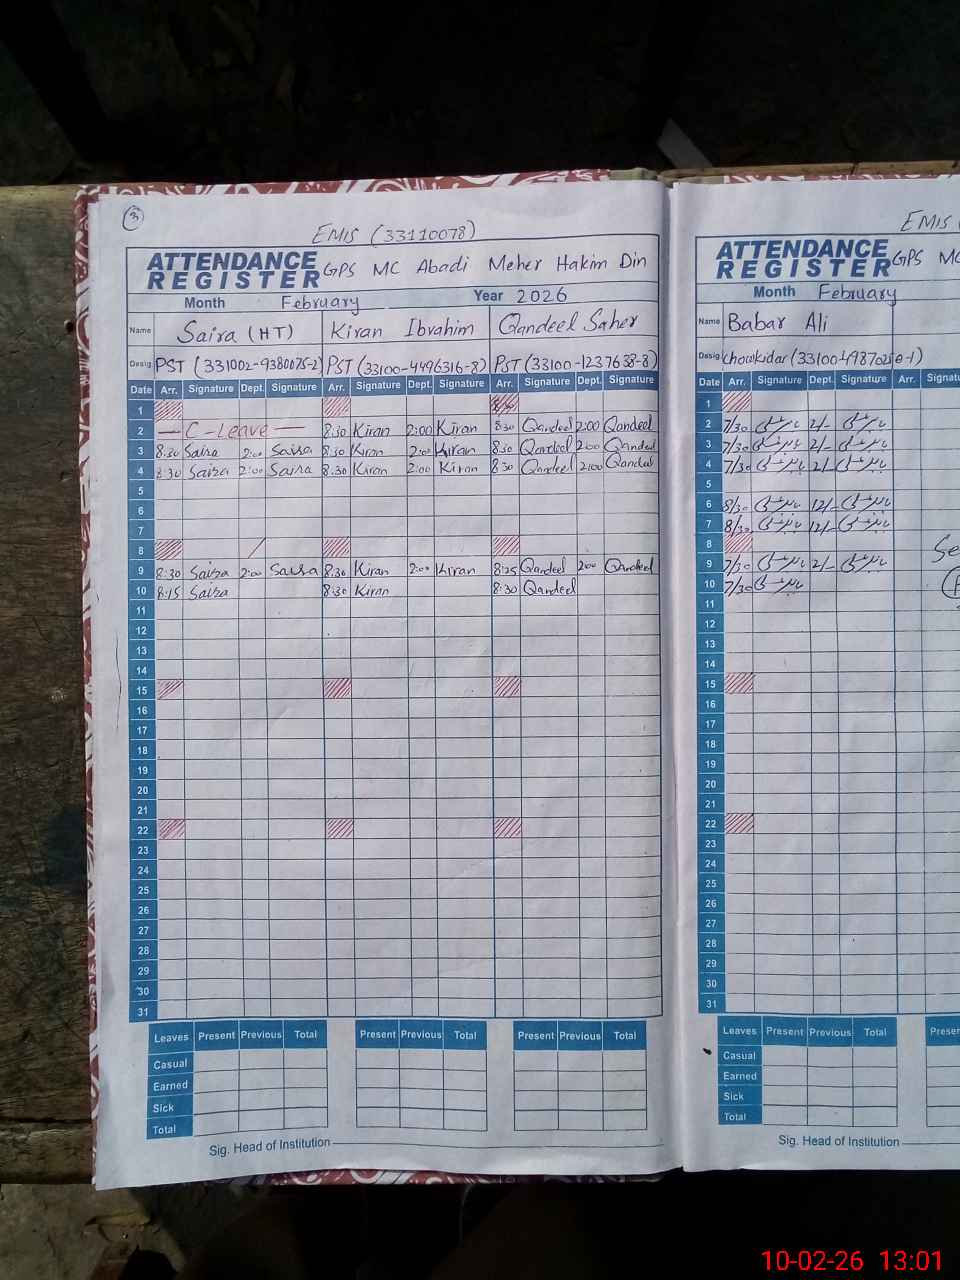 3
EMIS (33110078)
ATTENDANCE REGISTER GPS MC Abadi Meher Hakim Din
Month February Year 2026
Name Saira (HT) Kiran Ibrahim Qandeel Saher
Desig PST (331002-9380075-2) PST (33100-4496316-8) PST (33100-1237638-8)
Date Arr. Signature Dept. Signature Arr. Signature Dept. Signature Arr. Signature Dept. Signature
1
2 C-Leave 8:30 Kiran 2:00 Kiran 8:30 Qandeel 2:00 Qandeel
3 8:30 Saira 2:00 Saira 8:30 Kiran 2:00 Kiran 8:30 Qandeel 2:00 Qandeel
4 8:30 Saira 2:00 Saira 8:30 Kiran 2:00 Kiran 8:30 Qandeel 2:00 Qandeel
5
6
7
8
9 8:30 Saira 2:00 Saira 8:30 Kiran 2:00 Kiran 8:25 Qandeel 2:00 Qandeel
10 8:15 Saira 8:30 Kiran 8:30 Qandeel
11
12
13
14
15
16
17
18
19
20
21
22
23
24
25
26
27
28
29
30
31
Leaves Present Previous Total Present Previous Total Present Previous Total
Casual
Earned
Sick
Total
Sig. Head of Institution
EMIS (
ATTENDANCE REGISTER GPS MC
Month February
Name Babar Ali
Desig Chowkidar
Date Arr. Signature Dept. Signature Arr.
1
2 7/30 2/-
3 7/30 2/-
4 7/30 2/-
5
6 8/30 12/-
7 8/30 12/-
8
9 7/30 2/-
10 7/30
11
12
13
14
15
16
17
18
19
20
21
22
23
24
25
26
27
28
29
30
31
Leaves Present Previous Total
Casual
Earned
Sick
Total
Sig. Head of Institution
10-02-26 13:01